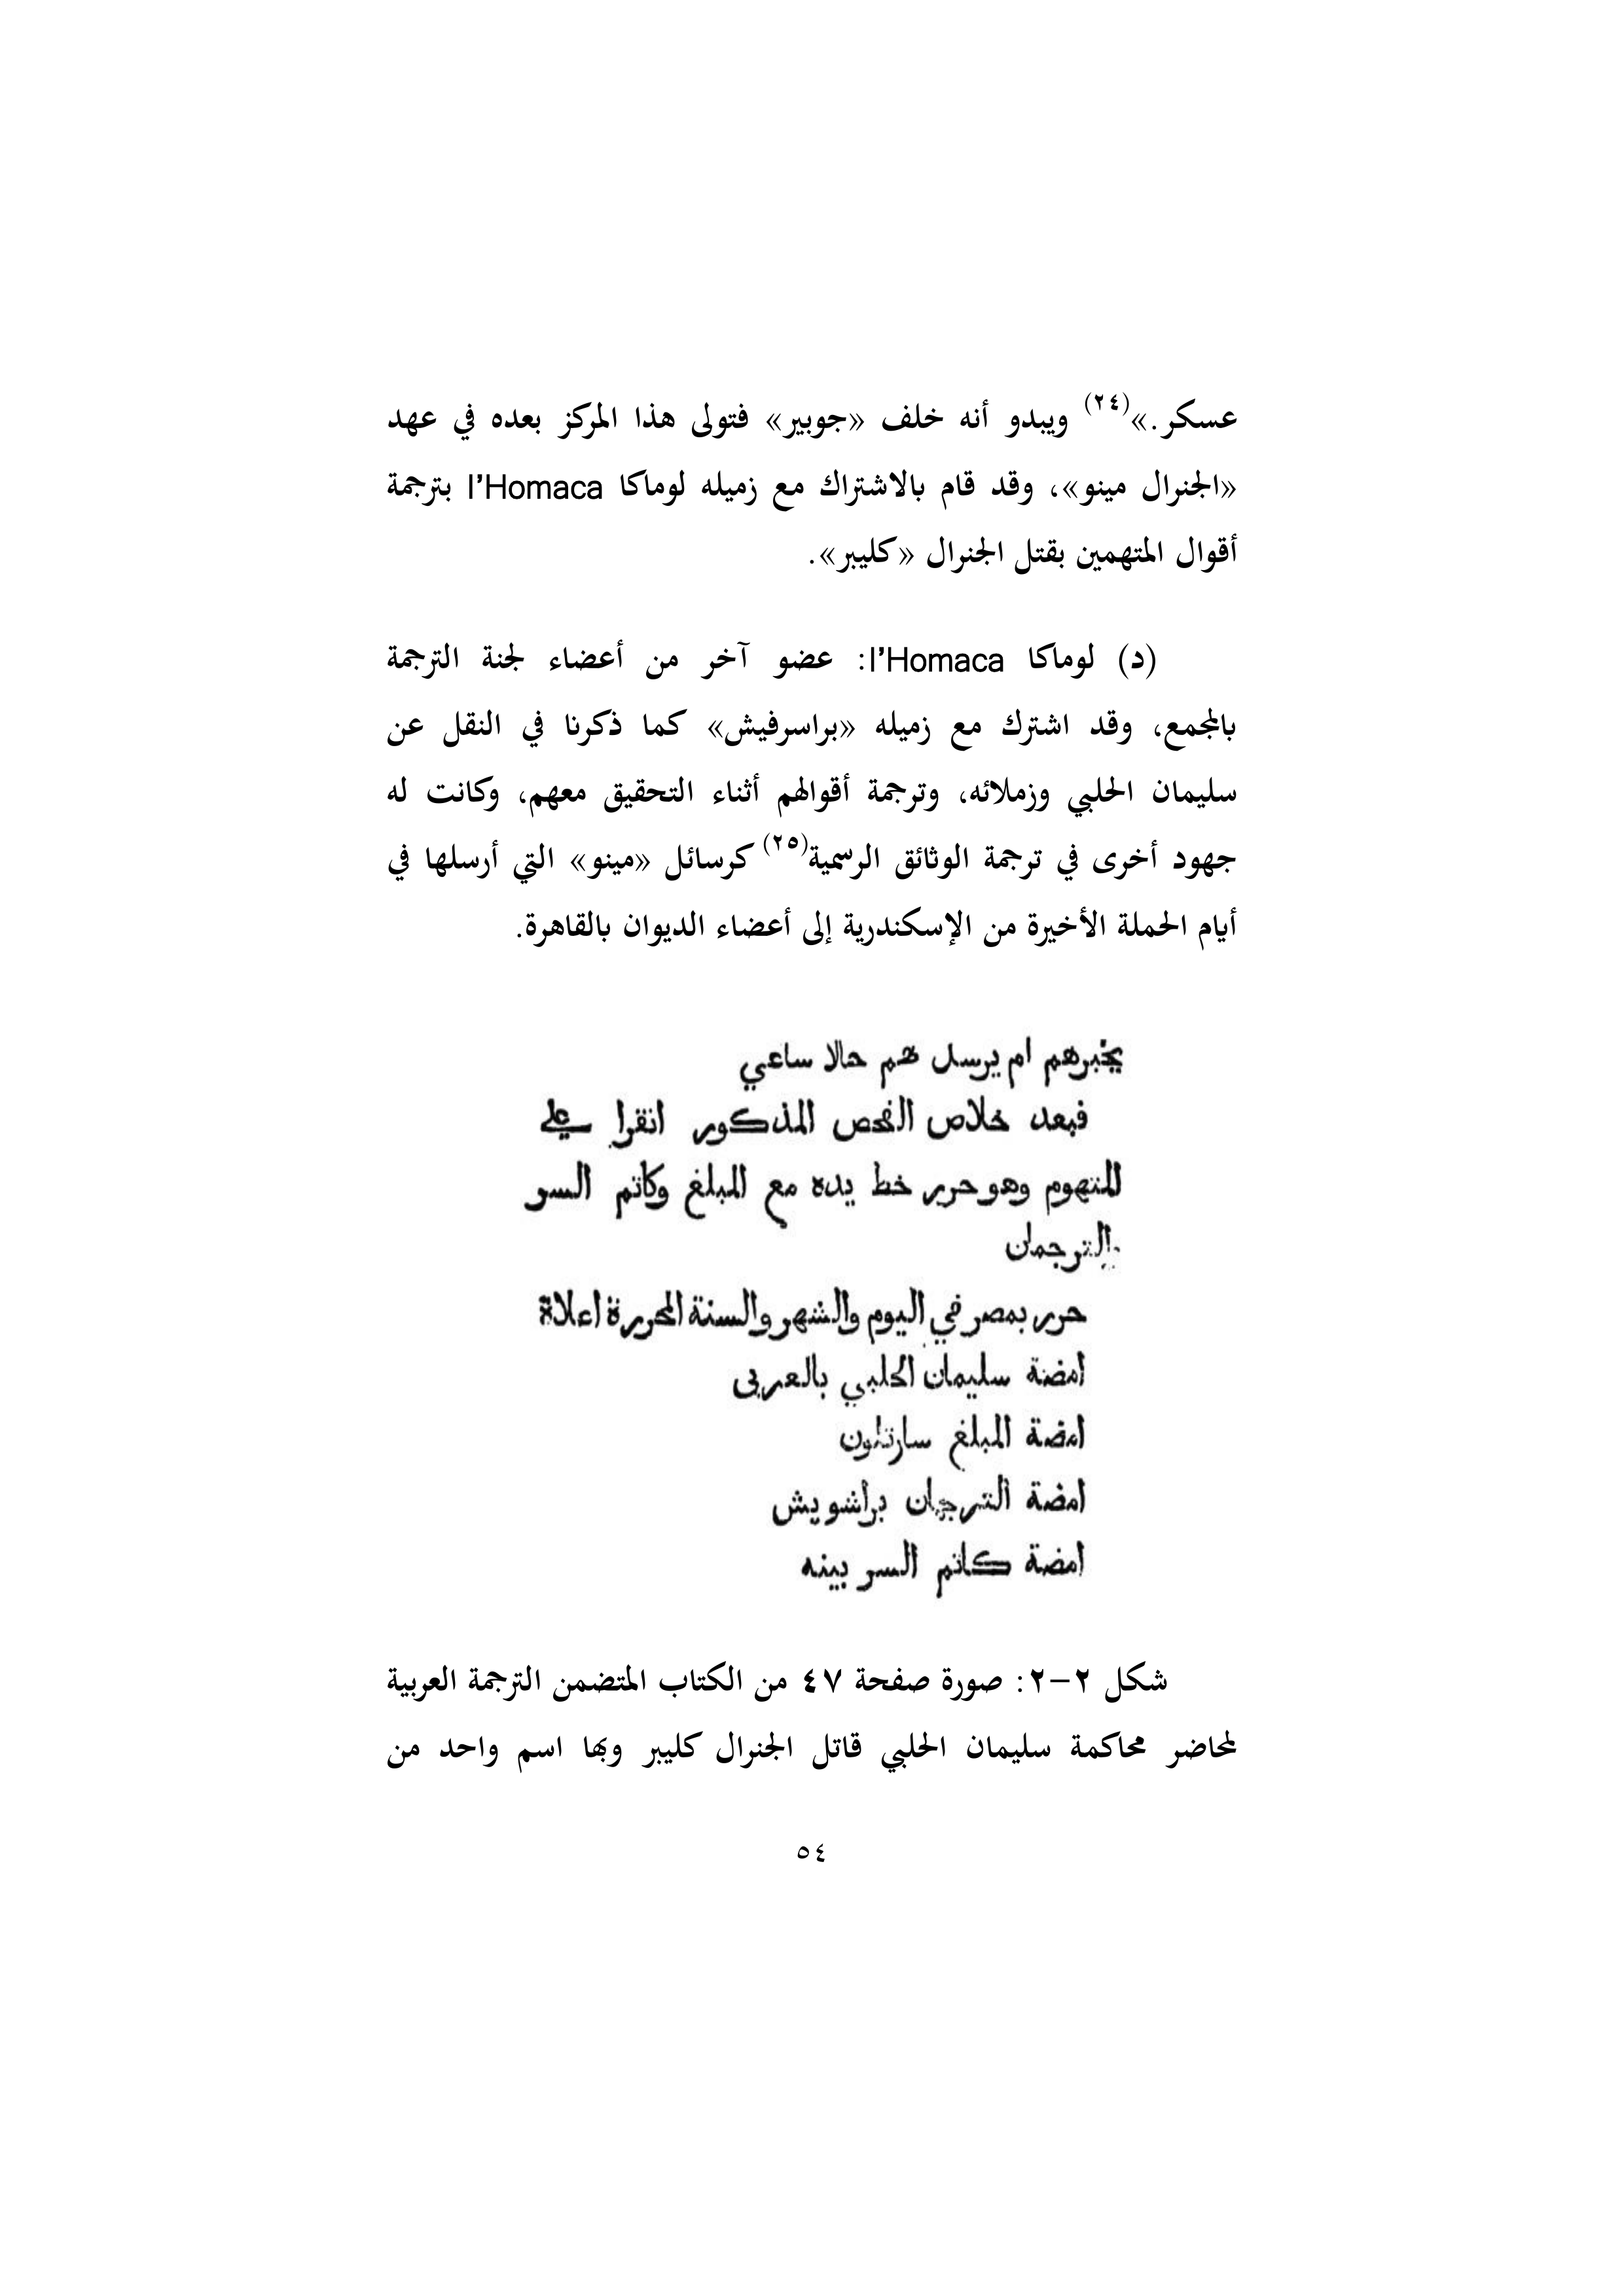 عسكر.»(٢٤) ويبدو أنه خلف «جوبير» فتولى هذا المركز بعده في عهد
«الجنرال مينو»، وقد قام بالاشتراك مع زميله لوماكا l’Homaca بترجمة
أقوال المتهمين بقتل الجنرال «كليبر».
(د) لوماكا l’Homaca: عضو آخر من أعضاء لجنة الترجمة
بالمجمع، وقد اشترك مع زميله «براسرفيش» كما ذكرنا في النقل عن
سليمان الحلبي وزملائه، وترجمة أقوالهم أثناء التحقيق معهم، وكانت له
جهود أخرى في ترجمة الوثائق الرسمية(٢٥) كرسائل «مينو» التي أرسلها في
أيام الحملة الأخيرة من الإسكندرية إلى أعضاء الديوان بالقاهرة.
يخبرهم ام يرسل هم حالا ساعي
فبعد خلاص الفحص المذكور انقرا علي
المتهوم وهو حرر خط يده مع المبلغ وكاتم السر
والترجمان
حرر بمصر في اليوم والشهر والسنة المحررة اعلاة
امضة سليمان الحلبي بالعربى
امضة المبلغ سارتلون
امضة الترجمان براشويش
امضة كاتم السر بينه
شكل ٢–٢: صورة صفحة ٤٧ من الكتاب المتضمن الترجمة العربية
لمحاضر محاكمة سليمان الحلبي قاتل الجنرال كليبر وبها اسم واحد من
٥٤